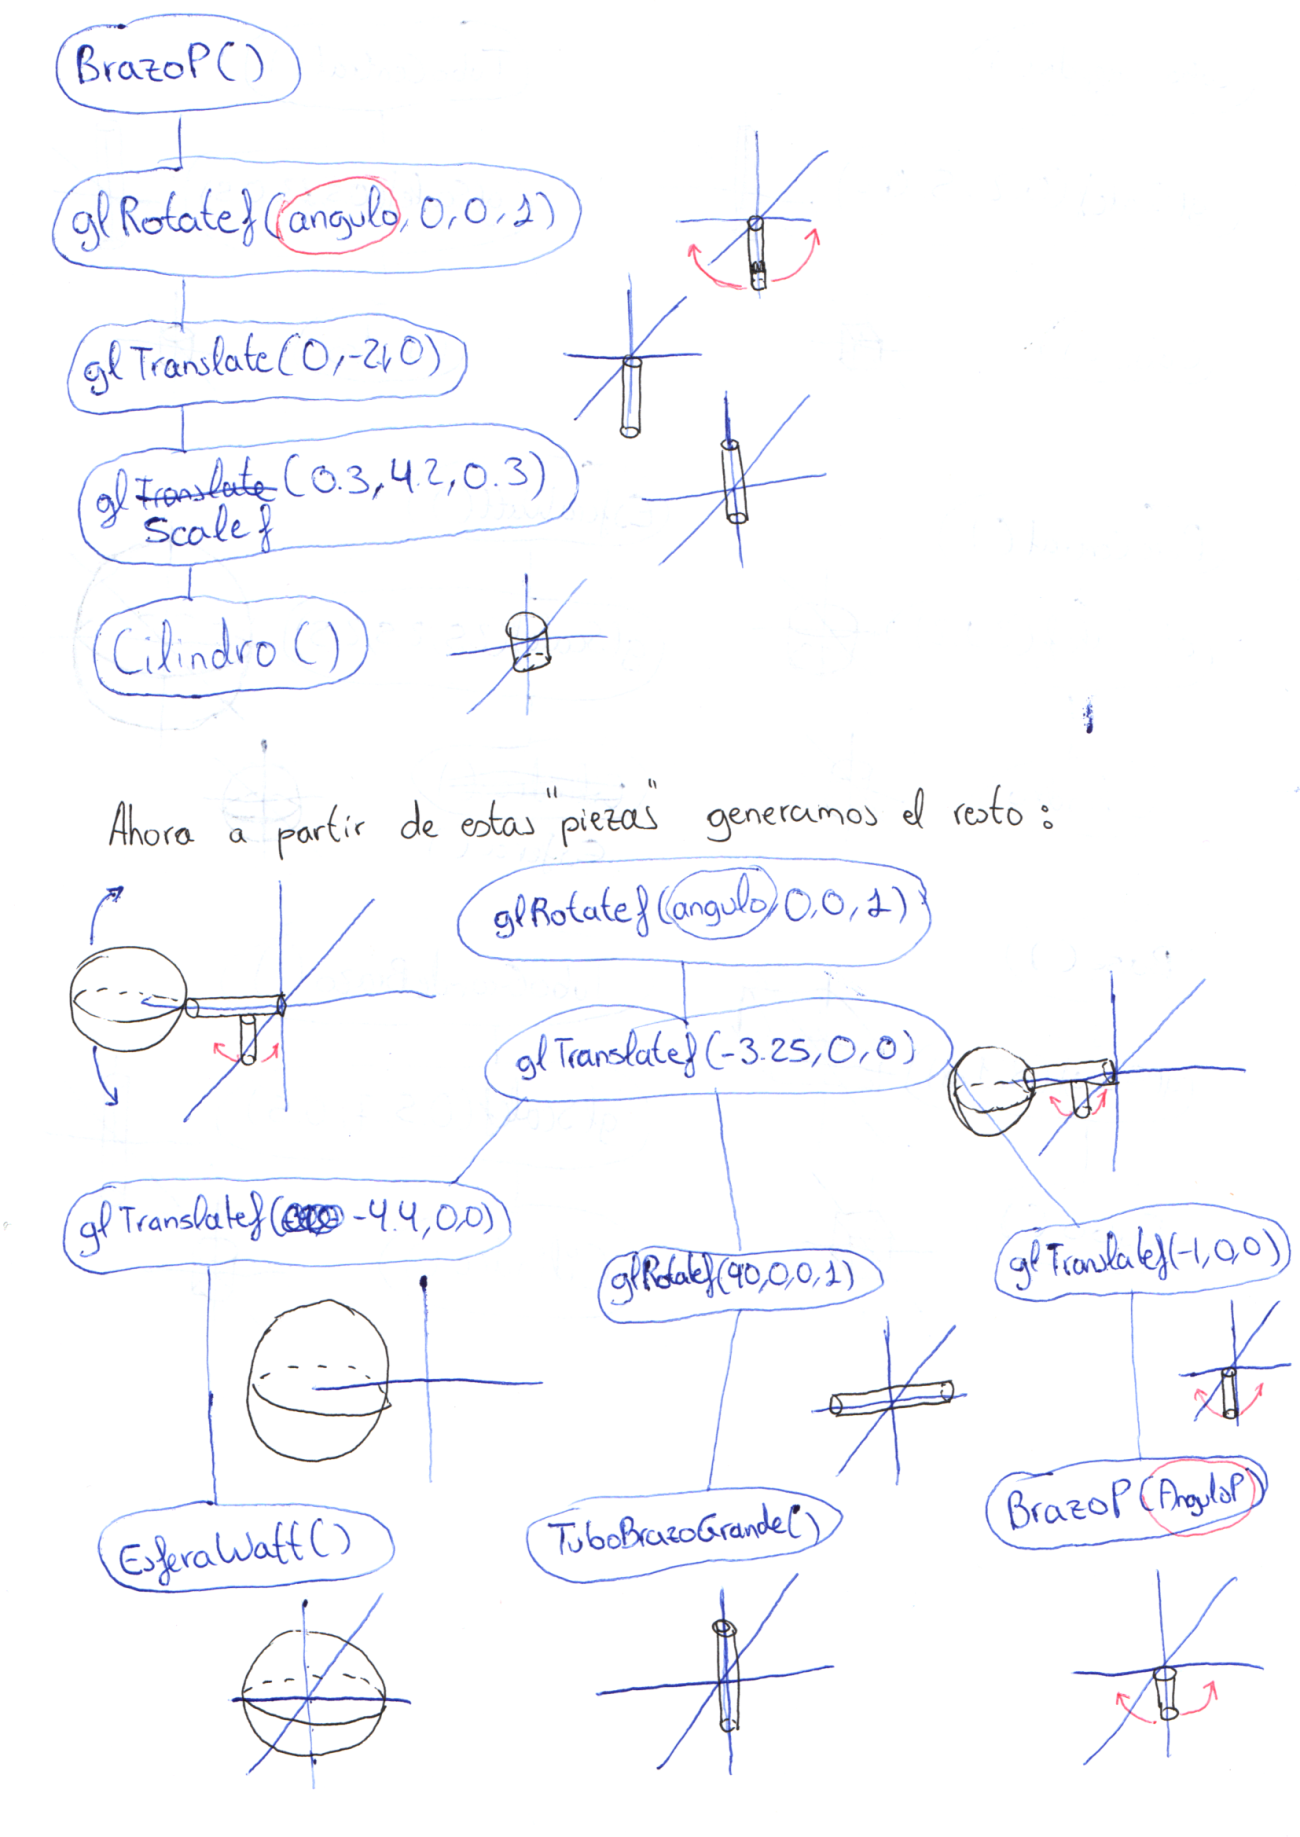 BrazoP()
glRotatef(angulo, 0, 0, 1)
glTranslate(0, -2, 0)
gl Translate (0.3, 4.2, 0.3)
Scalef
Cilindro()
Ahora a partir de estas "piezas" generamos el resto:
glRotatef(angulo, 0, 0, 1)
glTranslatef(-3.25, 0, 0)
glTranslatef( -4.4, 0, 0)
glRotatef(90, 0, 0, 1)
glTranslatef(-1, 0, 0)
EsferaWatt()
TuboBrazoGrande()
BrazoP(AnguloP)